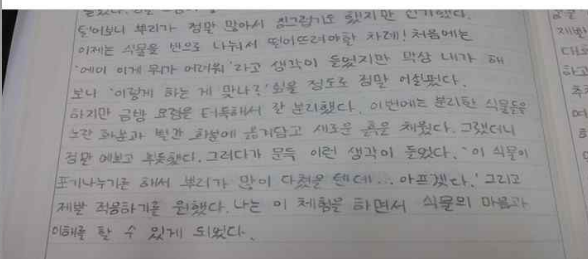 들이보니 뿌리가 정말 많아서 징그럽기도 했지만 신기했다.
이제는 식물을 반으로 나눠서 떨어뜨려야할 차례! 처음에는
'에이 이게 뭐가 어려워'라고 생각이 들었지만 막상 내가 해
보니 '이렇게 하는 게 맞나?' 싶을 정도로 정말 어려웠다.
하지만 금방 요점을 터득해서 잘 분리했다. 이번에는 분리한 식물들을
노란 화분과 빨간 화분에 옮겨담고 새로운 흙을 채웠다. 그랬더니
정말 예쁘고 뿌듯했다. 그러다가 문득 이런 생각이 들었다. '이 식물이
포기나누기를 해서 뿌리가 많이 다쳤을 텐데... 아프겠다.' 그리고
제발 적응하기를 원했다. 나는 이 체험을 하면서 식물의 마음과
이해를 할 수 있게 되었다.
제발